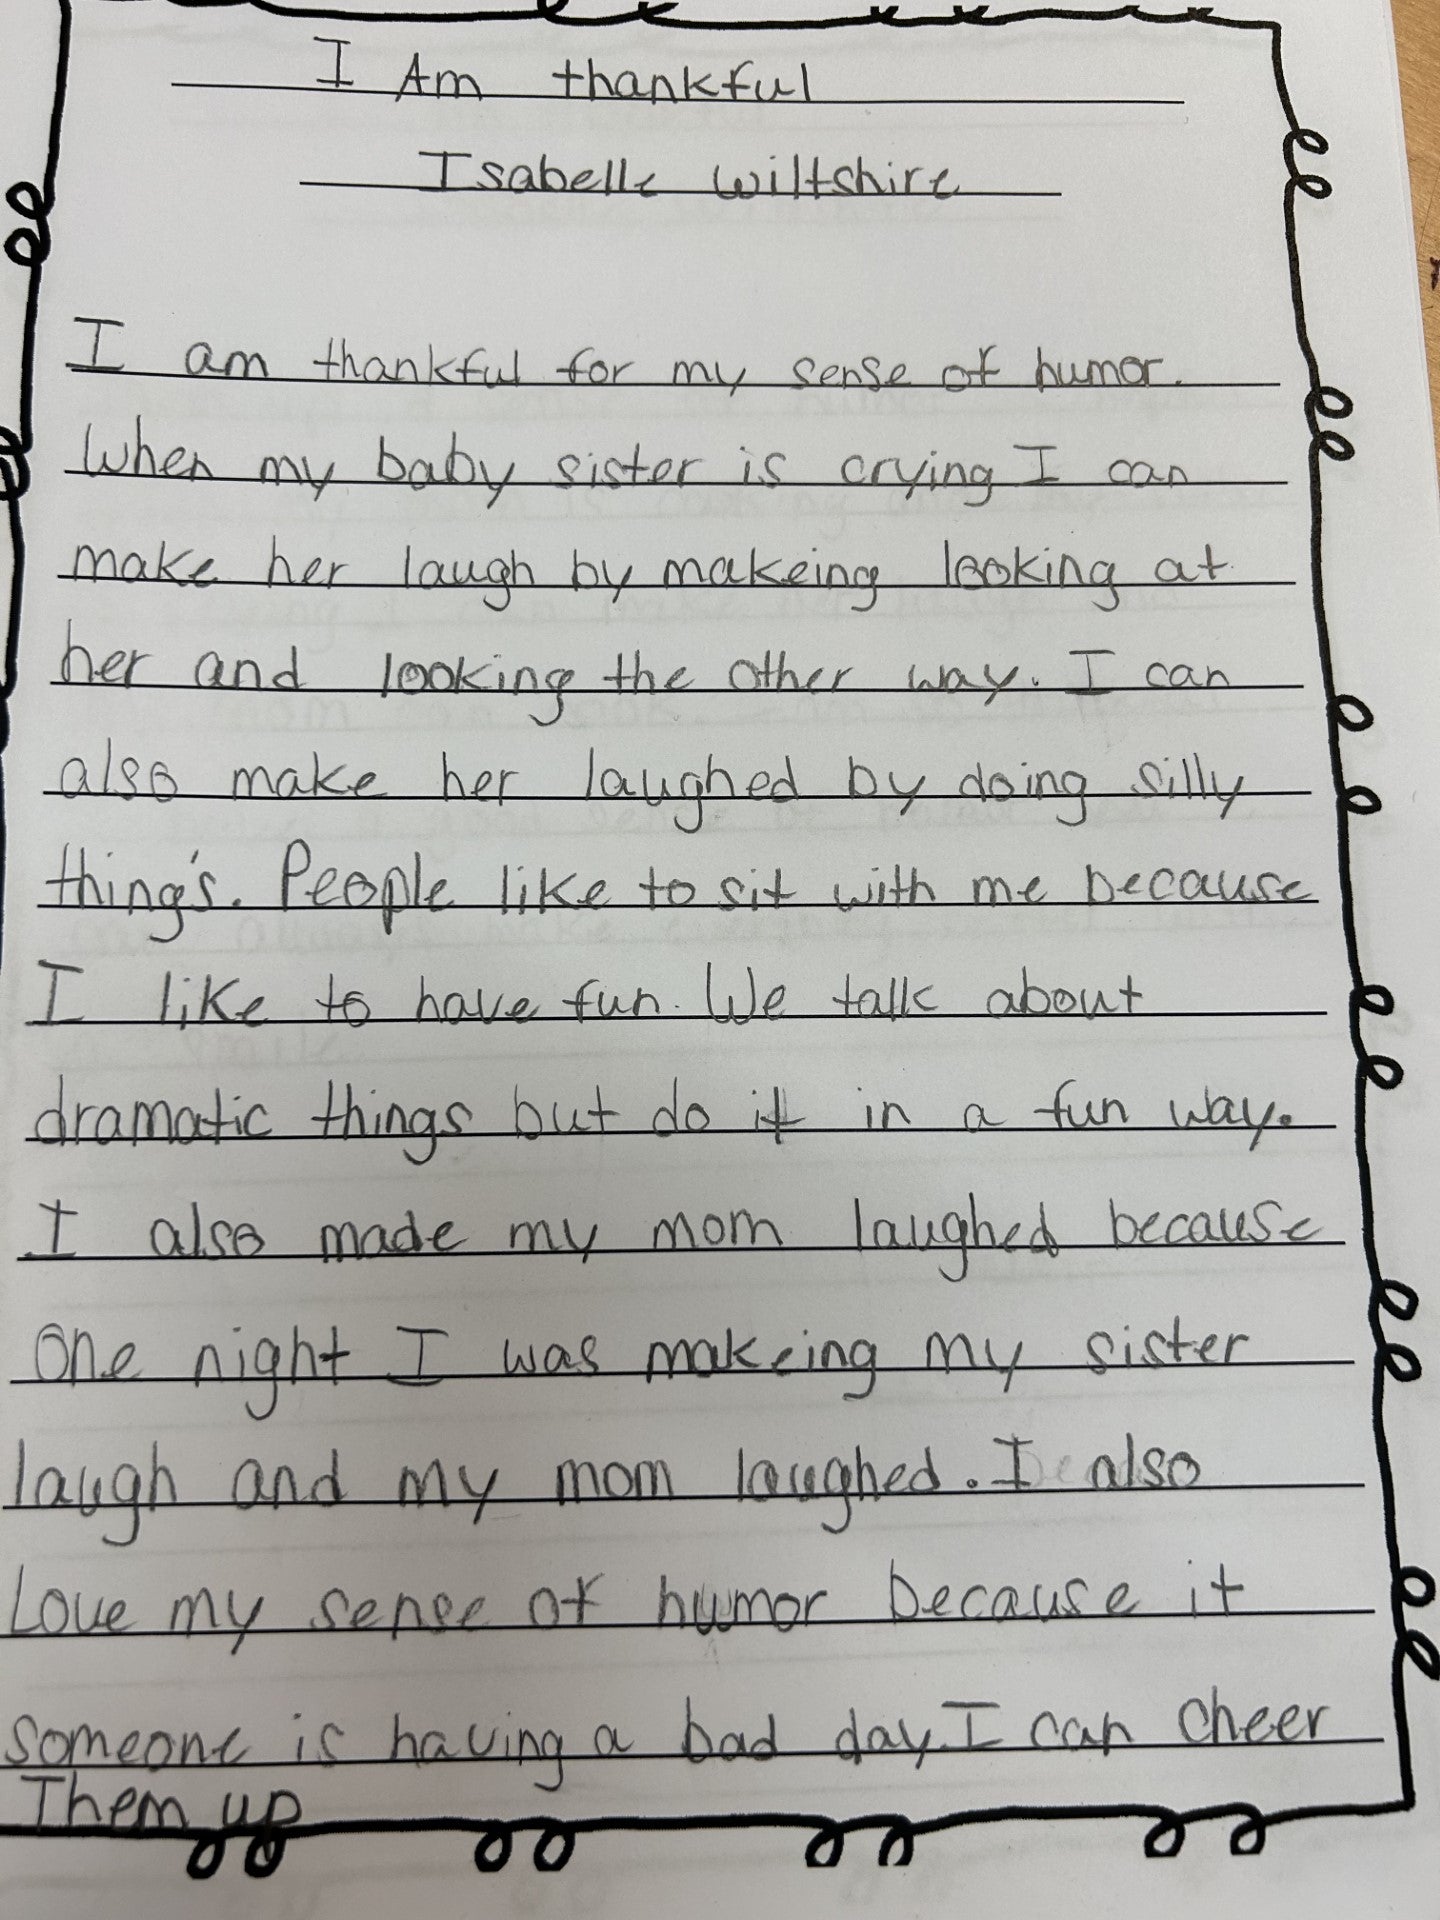 I Am thankful
Isabelle Wiltshire
I am thankful for my sense of humor.
When my baby sister is crying I can
make her laugh by makeing looking at
her and looking the other way. I can
also make her laughed by doing silly
thing's. People like to sit with me because
I like to have fun. We talk about
dramatic things but do it in a fun way.
I also made my mom laughed because
One night I was makeing my sister
laugh and my mom laughed. I also
Love my sense of humor because it
someone is having a bad day. I can cheer
Them up